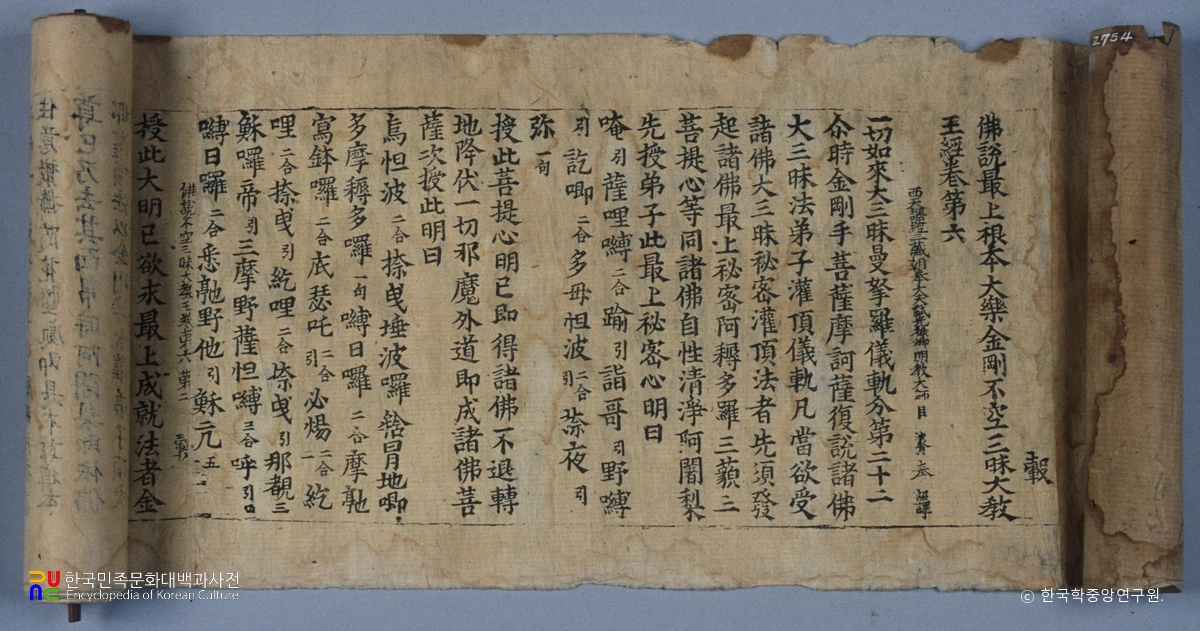 佛說最上根本大樂金剛不空三昧大教
王經卷第六
轂
一切如來大三昧曼拏羅儀軌分第二十二
尒時金剛手菩薩摩訶薩復說諸佛
大三昧法弟子灌頂儀軌凡當欲受
諸佛大三昧秘密灌頂法者先須發
起諸佛最上秘密阿耨多羅三藐三
菩提心等同諸佛自性清淨阿闍梨
先授弟子此最上秘密心明曰
唵引薩哩嚩二合踰引詣哥引野嚩
引訖唧二合多毋怛波二合引捺夜引
弥一句
授此菩提心明已即得諸佛不退轉
地降伏一切邪魔外道即成諸佛菩
薩次授此明曰
烏怛波二合捺曵埵波囉捨冐地唧
多摩耨多囉一句嚩日囉二合摩虵
寫鉢囉二合底瑟吒二合引必煬二合一紇
哩二合捺曵引紇哩二合捺曵引那覩三
穌囉帝引三摩野薩怛嚩三合呼引四
嚩日囉二合悉虵野他引穌亢五
佛說不空三昧大教王經卷六 苐二
授此大明已欲求最上成就法者金
2754
한국민족문화대백과사전
Encyclopedia of Korean Culture
© 한국학중앙연구원.